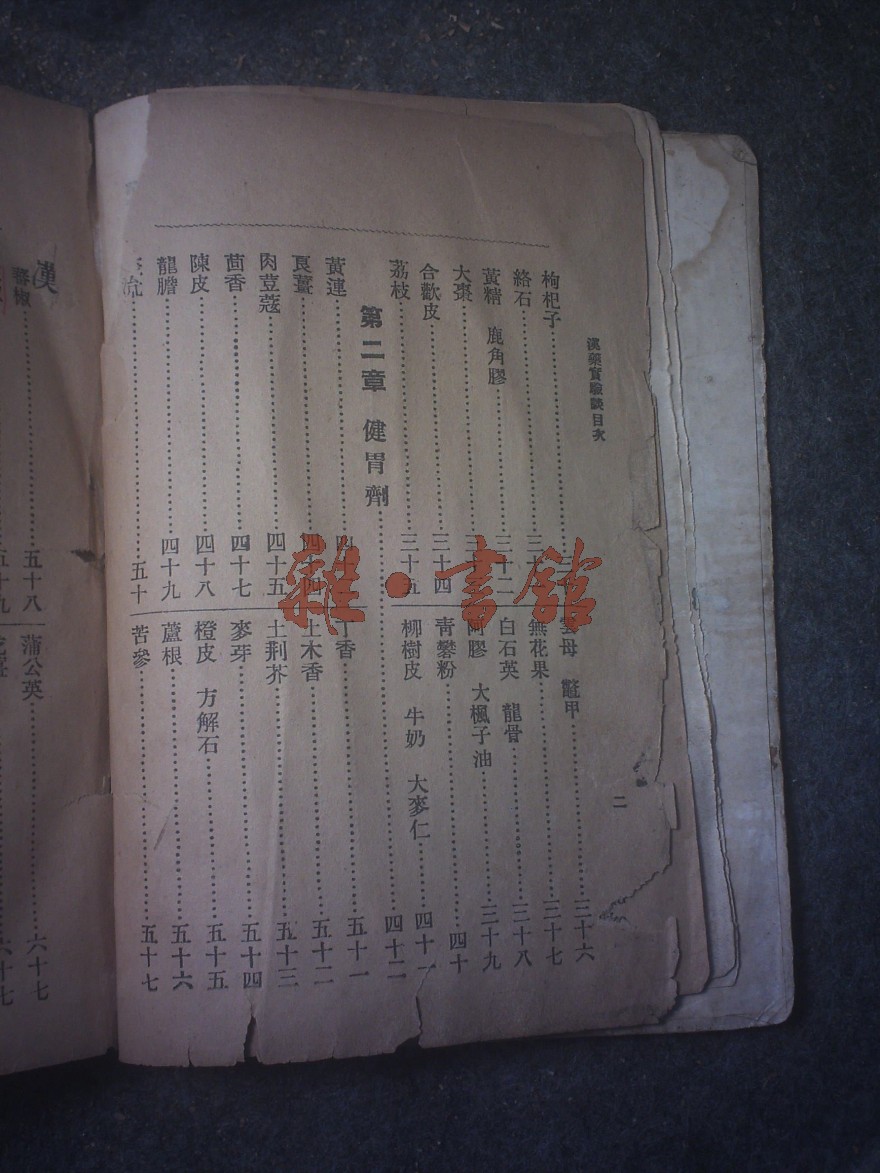 漢藥實驗談目次
二
枸杞子
絡石
黃精 鹿角膠 三十二
大棗
合歡皮 三十四
荔枝 三十五
雲母 鼈甲 三十六
無花果 三十七
白石英 龍骨 三十八
阿膠 大楓子油 三十九
青礬粉 四十
柳樹皮 牛奶 大麥仁 四十一
第二章 健胃劑 四十二
黃連
良薑 四十四
肉荳蔻 四十五
茴香 四十七
陳皮 四十八
龍膽 四十九
五十
丁香 五十一
土木香 五十二
土荆芥 五十三
麥芽 五十四
橙皮 方解石 五十五
蘆根 五十六
苦參 五十七
漢
五十八
蒲公英 六十七
五十九
六十七
雜·書館